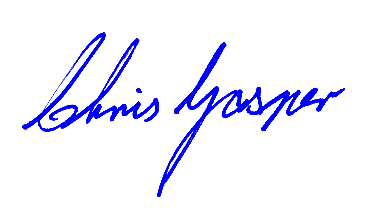 Chris Gasper